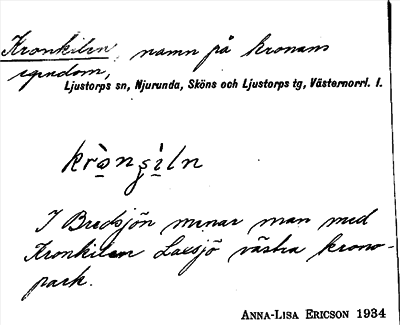 Kronkilen, namn på kronans
egendom,
Ljustorps sn, Njurunda, Sköns och Ljustorps tg, Västernorrl. l.
krò̱nʂi̱ln
I Bredsjön menar man med
Kronkilen Laxsjö västra krono-
park.
ANNA-LISA ERICSON 1934